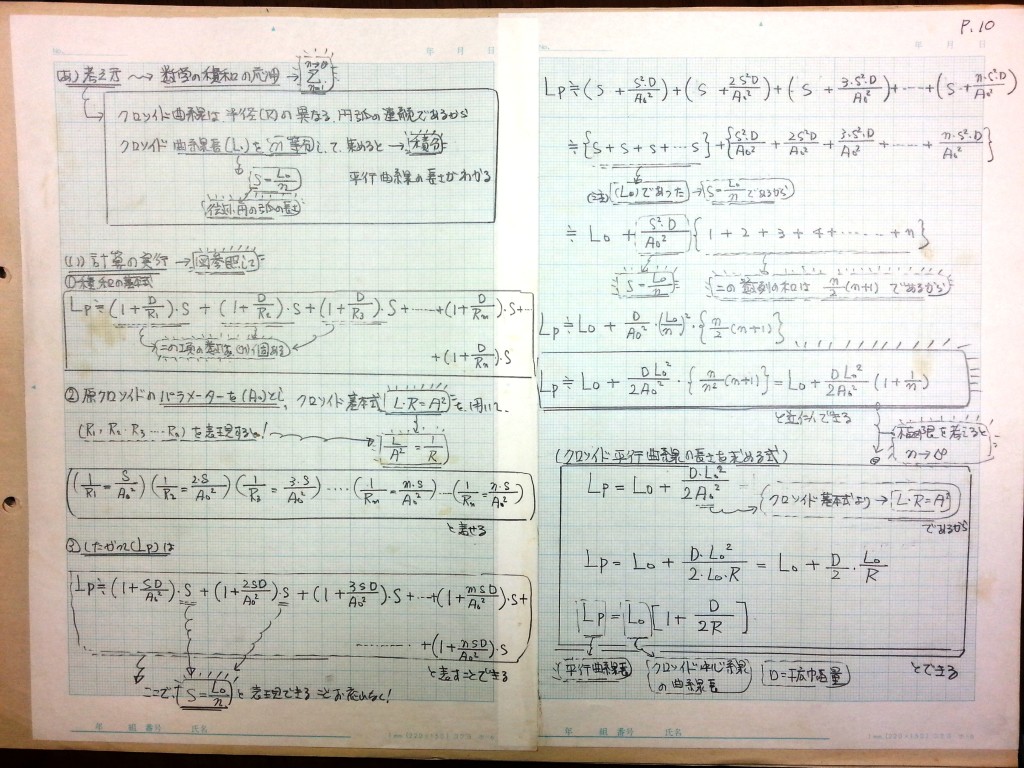 P.10
No.
年 月 日
(あ) 考え方 〜→ 数学の積和の応用 → n→∞ Σ n=1
クロソイド曲線は半径(R)の異なる、円弧の連続であるから
クロソイド曲線長(L₀)を「n」等分して、集めると → 積分
S = L₀/n
平行曲線の長さがわかる
微小円の弧の長さ
(い) 計算の実行 → 図参照して
①積和の基本式
Lp ≒ (1+D/R₁)·S + (1+D/R₂)·S + (1+D/R₃)·S + ‥‥ +(1+D/Rm)·S+‥
+(1+D/Rn)·S
この項の数は(n)個ある
②原クロソイドのパラメーターを(A₀)とし、クロソイド基本式 L·R=A² を用いて、
(R₁, R₂ R₃ ‥‥ Rn) を表現すると!
L/A² = 1/R
(1/R₁ = S/A₀²) (1/R₂ = 2·S/A₀²) (1/R₃ = 3·S/A₀²) ‥‥ (1/Rm = m·S/A₀²) ‥‥ (1/Rn = n·S/A₀²)
と表せる
③したがって(Lp)は
Lp ≒ (1+SD/A₀²)·S + (1+2SD/A₀²)·S + (1+3SD/A₀²)·S + ‥‥+(1+mSD/A₀²)·S+
‥‥‥ +(1+nSD/A₀²)·S
と表すことできる
ここで、 S = L₀/n と表現できることお忘れなく!
年 組 番号 氏名
No.
年 月 日
Lp ≒ (S + S²·D/A₀²)+(S + 2S²D/A₀²)+(S + 3·S²·D/A₀²)+‥‥+(S+n·S²·D/A₀²)
≒ {S + S + S + ‥‥ S} + {S²D/A₀² + 2S²D/A₀² + 3·S²D/A₀² + ‥‥ + n·S²·D/A₀²}
(注) (L₀)であった → S = L₀/n であるから
≒ L₀ + S²·D/A₀² {1 + 2 + 3 + 4 + ‥‥‥ + n}
S = L₀/n
この数列の和は n/2(n+1) であるから
Lp ≒ L₀ + D/A₀² · (L₀/n)² · {n/2(n+1)}
Lp ≒ L₀ + DL₀²/2A₀² · {n/n²(n+1)} = L₀ + DL₀²/2A₀² (1+1/n)
と近似できる
極限を考えると n→∞
(クロソイド平行曲線の長さを求める式)
Lp = L₀ + D·L₀²/2A₀²
クロソイド基本式より → L·R=A²
であるから
Lp = L₀ + D·L₀²/2·L₀·R = L₀ + D/2 · L₀/R
Lp = L₀ [1 + D/2R]
平行曲線長
クロソイド中心線の曲線長
D=拡巾量
とできる
年 組 番号 氏名